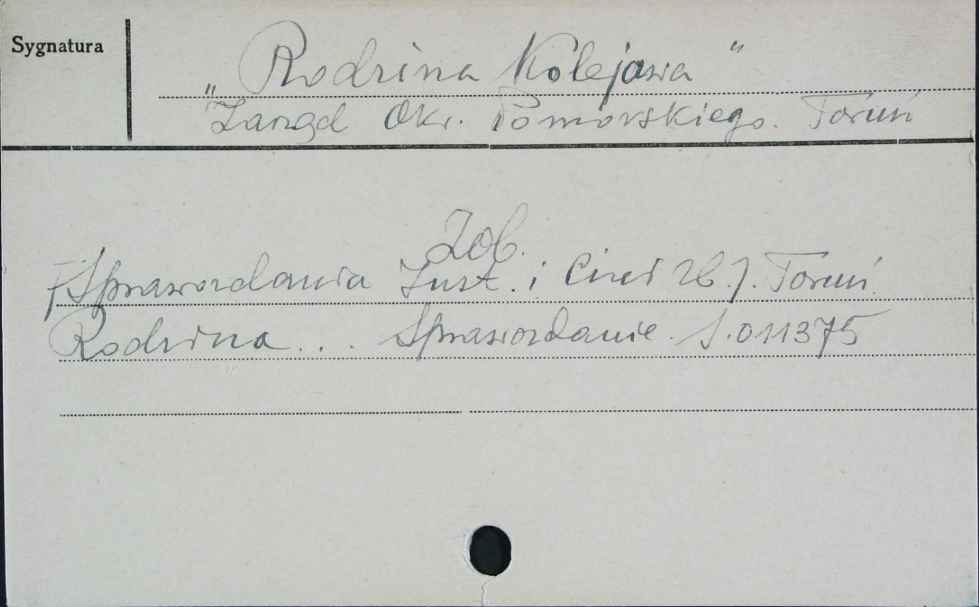 Sygnatura
"Rodzina Kolejowa"
Zarząd Okr. Pomorskiego. Toruń
Zob.
[Sprawozdania Inst. i Ciał Zb.]. Toruń.
Rodzina... Sprawozdanie. S.011375